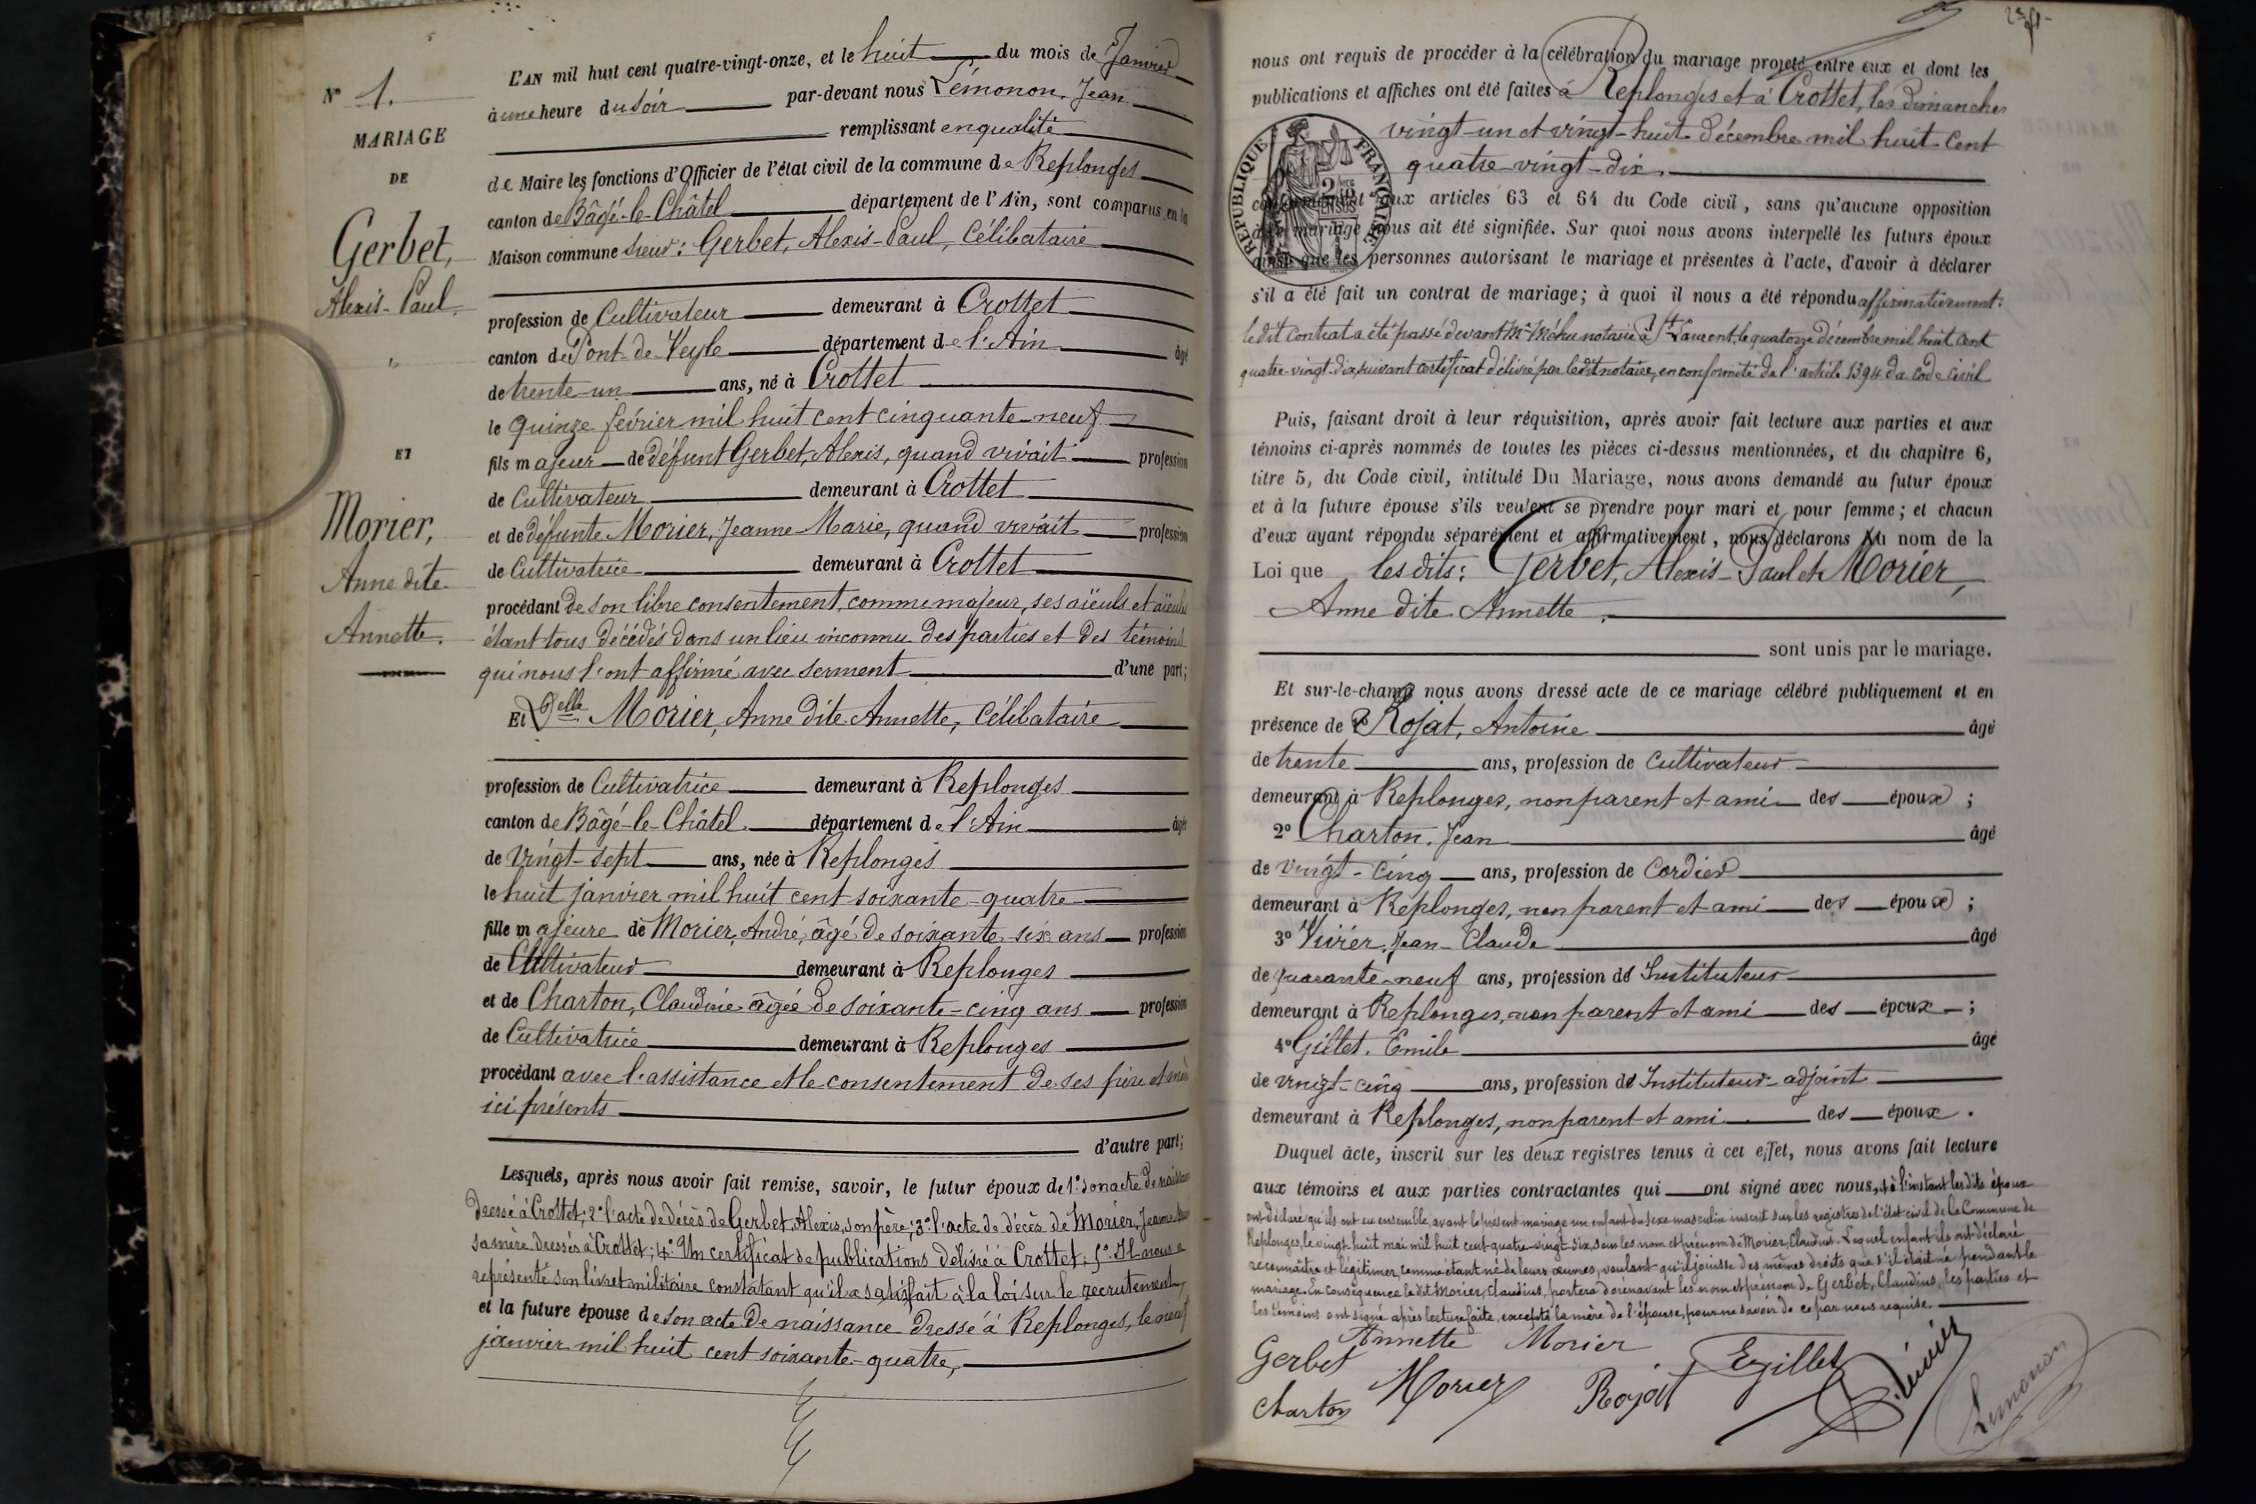 N° 1.
MARIAGE
DE
Gerbet,
Alexis-Paul.
ET
Morier,
Anne dite
Annette.
L'AN mil huit cent quatre-vingt-onze, et le huit du mois de Janvier
à une heure du soir par-devant nous Lémonon, Jean
remplissant en qualité
de Maire les fonctions d'Officier de l'état civil de la commune de Replonges
canton de Bâgé-le-Châtel département de l'Ain, sont comparus en la
Maison commune sieur: Gerbet, Alexis-Paul, Célibataire
profession de Cultivateur demeurant à Crottet
canton de Pont-de-Veyle département de l'Ain âgé
de trente-un ans, né à Crottet
le quinze février mil huit cent cinquante-neuf
fils majeur de défunt Gerbet, Alexis, quand vivait profession
de Cultivateur demeurant à Crottet
et de défunte Morier, Jeanne-Marie, quand vivait profession
de Cultivatrice demeurant à Crottet
procédant de son libre consentement, comme majeur, ses aïeuls et aïeules
étant tous décédés dans un lieu inconnu des parties et des témoins
qui nous l'ont affirmé avec serment d'une part;
Et Delle Morier, Anne dite Annette, Célibataire
profession de Cultivatrice demeurant à Replonges
canton de Bâgé-le-Châtel département de l'Ain âgée
de vingt-sept ans, née à Replonges
le huit janvier mil huit cent soixante-quatre
fille majeure de Morier, André, âgé de soixante-six ans profession
de Cultivateur demeurant à Replonges
et de Charton, Claudine âgée de soixante-cinq ans profession
de Cultivatrice demeurant à Replonges
procédant avec l'assistance et le consentement de ses père et mère
ici présents
d'autre part;
Lesquels, après nous avoir fait remise, savoir, le futur époux de 1° son acte de naissance
dressé à Crottet; 2° l'acte de décès de Gerbet, Alexis, son père; 3° l'acte de décès de Morier, Jeanne-Marie
sa mère dressés à Crottet; 4° Un certificat de publications délivré à Crottet; 5° Il nous a
représenté son livret militaire constatant qu'il a satisfait à la loi sur le recrutement,
et la future épouse de son acte de naissance dressé à Replonges, le neuf
janvier mil huit cent soixante-quatre,
nous ont requis de procéder à la célébration du mariage projeté entre eux et dont les
publications et affiches ont été faites à Replonges et à Crottet, les dimanches
vingt-un et vingt-huit décembre mil huit cent
quatre-vingt-dix,
conformément aux articles 63 et 64 du Code civil, sans qu'aucune opposition
audit mariage nous ait été signifiée. Sur quoi nous avons interpellé les futurs époux
ainsi que les personnes autorisant le mariage et présentes à l'acte, d'avoir à déclarer
s'il a été fait un contrat de mariage; à quoi il nous a été répondu affirmativement:
le dit contrat a été passé devant Me Méhu notaire à St Laurent, le quatorze décembre mil huit cent
quatre-vingt-dix, suivant certificat délivré par le dit notaire, en conformité de l'article 1394 du code civil
RÉPUBLIQUE FRANÇAISE
Puis, faisant droit à leur réquisition, après avoir fait lecture aux parties et aux
témoins ci-après nommés de toutes les pièces ci-dessus mentionnées, et du chapitre 6,
titre 5, du Code civil, intitulé Du Mariage, nous avons demandé au futur époux
et à la future épouse s'ils veulent se prendre pour mari et pour femme; et chacun
d'eux ayant répondu séparément et affirmativement, nous déclarons au nom de la
Loi que les dits: Gerbet, Alexis-Paul et Morier,
Anne dite Annette,
sont unis par le mariage.
Et sur-le-champ nous avons dressé acte de ce mariage célébré publiquement et en
présence de Rojat, Antoine âgé
de trente ans, profession de Cultivateur
demeurant à Replonges, non parent et ami des époux;
2° Charton, Jean âgé
de vingt-cinq ans, profession de Cordier
demeurant à Replonges, non parent et ami des époux;
3° Vivier, Jean-Claude âgé
de quarante-neuf ans, profession d'Instituteur
demeurant à Replonges, non parent et ami des époux;
4° Gillet, Emile âgé
de vingt-cinq ans, profession d'Instituteur-adjoint
demeurant à Replonges, non parent et ami des époux.
Duquel acte, inscrit sur les deux registres tenus à cet effet, nous avons fait lecture
aux témoins et aux parties contractantes qui ont signé avec nous, et à l'instant les dits époux
ont déclaré qu'ils ont eu ensemble, avant le présent mariage un enfant du sexe masculin inscrit sur les registres de l'état civil de la Commune de
Replonges, le vingt-huit mai mil huit cent quatre-vingt-dix, sous les nom et prénom de Morier, Claudius. Lequel enfant ils ont déclaré
reconnaître et légitimer, comme étant né de leurs œuvres, voulant qu'il jouisse des mêmes droits que s'il était né pendant le
mariage. En conséquence le dit Morier, Claudius, portera dorénavant les nom et prénom de Gerbet, Claudius, les parties et
les témoins ont signé après lecture faite, excepté la mère de l'épouse, pour ne savoir de ce par nous requise.
Gerbet Annette Morier
Charton Morier Rojat E. Gillet Vivier Lémonon